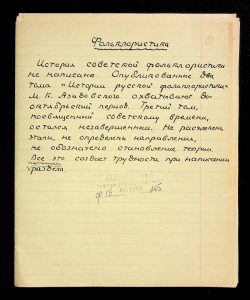 Фольклористика
1
История советской фольклористики
не написана. Опубликованные два
тома "Истории русской фольклористики"
М. К. Азадовского охватывают до-
октябрьский период. Третий том,
посвященный советскому времени,
остался незавершенным. Не расчленены
этапы, не определены направления,
не обозначено становление теории.
Все это создает трудности при написании
настоящего
раздела.